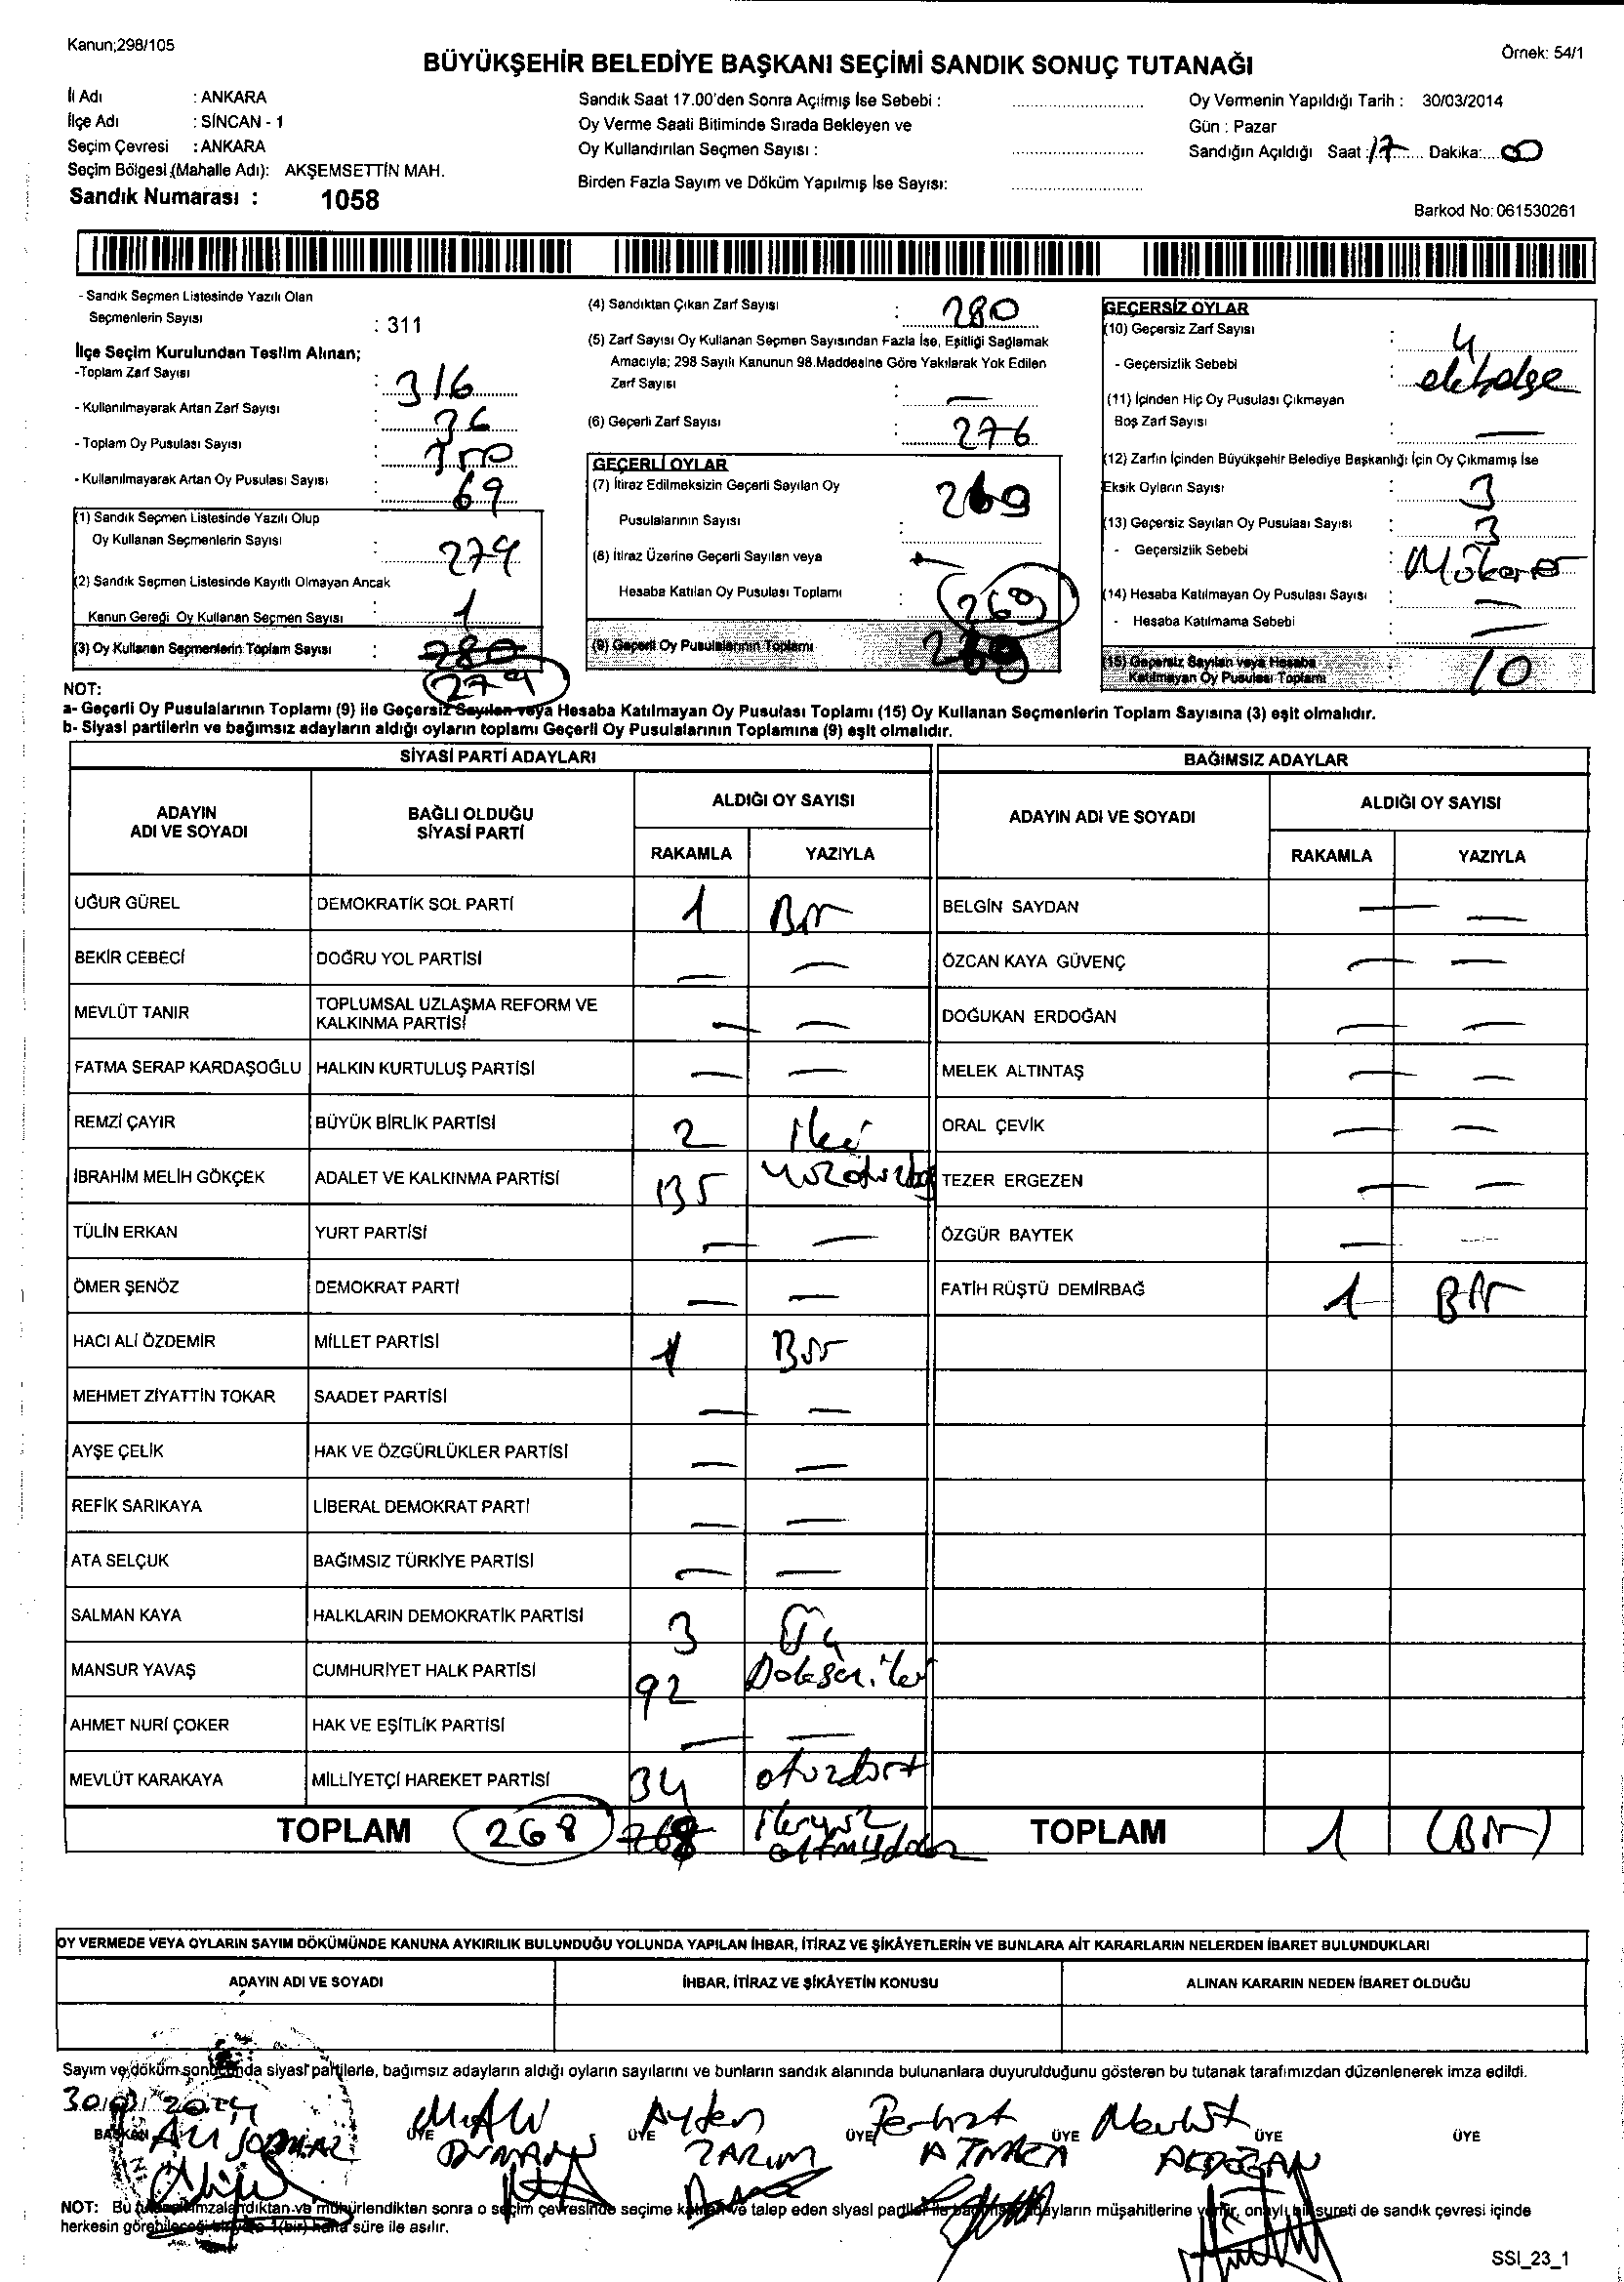 Kanun;298/105
Örnek: 54/1
BÜYÜKŞEHİR BELEDİYE BAŞKANI SEÇİMİ SANDIK SONUÇ TUTANAĞI
İl Adı : ANKARA
İlçe Adı : SİNCAN - 1
Seçim Çevresi : ANKARA
Seçim Bölgesi (Mahalle Adı): AKŞEMSETTİN MAH.
Sandık Numarası : 1058
Sandık Saat 17.00'den Sonra Açılmış İse Sebebi :
Oy Verme Saati Bitiminde Sırada Bekleyen ve
Oy Kullandırılan Seçmen Sayısı :
Birden Fazla Sayım ve Döküm Yapılmış İse Sayısı:
Oy Vermenin Yapıldığı Tarih : 30/03/2014
Gün : Pazar
Sandığın Açıldığı Saat : 17 Dakika: 00
Barkod No: 061530261
- Sandık Seçmen Listesinde Yazılı Olan
Seçmenlerin Sayısı : 311
İlçe Seçim Kurulundan Teslim Alınan;
-Toplam Zarf Sayısı : 316
- Kullanılmayarak Artan Zarf Sayısı : 36
- Toplam Oy Pusulası Sayısı :
- Kullanılmayarak Artan Oy Pusulası Sayısı : 69
(1) Sandık Seçmen Listesinde Yazılı Olup
Oy Kullanan Seçmenlerin Sayısı : 279
(2) Sandık Seçmen Listesinde Kayıtlı Olmayan Ancak
Kanun Gereği Oy Kullanan Seçmen Sayısı : 1
(3) Oy Kullanan Seçmenlerin Toplam Sayısı : 280
279
(4) Sandıktan Çıkan Zarf Sayısı : 280
(5) Zarf Sayısı Oy Kullanan Seçmen Sayısından Fazla İse, Eşitliği Sağlamak
Amacıyla; 298 Sayılı Kanunun 98.Maddesine Göre Yakılarak Yok Edilen
Zarf Sayısı : —
(6) Geçerli Zarf Sayısı : 276
GEÇERLİ OYLAR
(7) İtiraz Edilmeksizin Geçerli Sayılan Oy
Pusulalarının Sayısı : 269
(8) İtiraz Üzerine Geçerli Sayılan veya
Hesaba Katılan Oy Pusulası Toplamı : —
269
(9) Geçerli Oy Pusulalarının Toplamı
GEÇERSİZ OYLAR
(10) Geçersiz Zarf Sayısı : 4
- Geçersizlik Sebebi :
(11) İçinden Hiç Oy Pusulası Çıkmayan
Boş Zarf Sayısı : —
(12) Zarfın İçinden Büyükşehir Belediye Başkanlığı İçin Oy Çıkmamış İse
Eksik Oyların Sayısı : 3
(13) Geçersiz Sayılan Oy Pusulası Sayısı : 3
- Geçersizlik Sebebi :
(14) Hesaba Katılmayan Oy Pusulası Sayısı : —
- Hesaba Katılmama Sebebi : —
(15) Geçersiz Sayılan veya Hesaba
Katılmayan Oy Pusulası Toplamı : 10
NOT:
a- Geçerli Oy Pusulalarının Toplamı (9) ile Geçersiz Sayılan veya Hesaba Katılmayan Oy Pusulası Toplamı (15) Oy Kullanan Seçmenlerin Toplam Sayısına (3) eşit olmalıdır.
b- Siyasi partilerin ve bağımsız adayların aldığı oyların toplamı Geçerli Oy Pusulalarının Toplamına (9) eşit olmalıdır.
SİYASİ PARTİ ADAYLARI
ADAYIN ADI VE SOYADI BAĞLI OLDUĞU SİYASİ PARTİ ALDIĞI OY SAYISI
RAKAMLA YAZIYLA
UĞUR GÜREL DEMOKRATİK SOL PARTİ 1 Bir
BEKİR CEBECİ DOĞRU YOL PARTİSİ — —
MEVLÜT TANIR TOPLUMSAL UZLAŞMA REFORM VE KALKINMA PARTİSİ — —
FATMA SERAP KARDAŞOĞLU HALKIN KURTULUŞ PARTİSİ — —
REMZİ ÇAYIR BÜYÜK BİRLİK PARTİSİ 2 iki
İBRAHİM MELİH GÖKÇEK ADALET VE KALKINMA PARTİSİ 135 yüzotuzbeş
TÜLİN ERKAN YURT PARTİSİ — —
ÖMER ŞENÖZ DEMOKRAT PARTİ — —
HACI ALİ ÖZDEMİR MİLLET PARTİSİ 1 Bir
MEHMET ZİYATTİN TOKAR SAADET PARTİSİ — —
AYŞE ÇELİK HAK VE ÖZGÜRLÜKLER PARTİSİ — —
REFİK SARIKAYA LİBERAL DEMOKRAT PARTİ — —
ATA SELÇUK BAĞIMSIZ TÜRKİYE PARTİSİ — —
SALMAN KAYA HALKLARIN DEMOKRATİK PARTİSİ 3 Üç
MANSUR YAVAŞ CUMHURİYET HALK PARTİSİ 92 Doksan iki
AHMET NURİ ÇOKER HAK VE EŞİTLİK PARTİSİ — —
MEVLÜT KARAKAYA MİLLİYETÇİ HAREKET PARTİSİ 34 otuzdört
TOPLAM 268 268 ikiyüz altmışdokuz
BAĞIMSIZ ADAYLAR
ADAYIN ADI VE SOYADI ALDIĞI OY SAYISI
RAKAMLA YAZIYLA
BELGİN SAYDAN — —
ÖZCAN KAYA GÜVENÇ — —
DOĞUKAN ERDOĞAN — —
MELEK ALTINTAŞ — —
ORAL ÇEVİK — —
TEZER ERGEZEN — —
ÖZGÜR BAYTEK — —
FATİH RÜŞTÜ DEMİRBAĞ 1 Bir
TOPLAM 1 (Bir)
OY VERMEDE VEYA OYLARIN SAYIM DÖKÜMÜNDE KANUNA AYKIRILIK BULUNDUĞU YOLUNDA YAPILAN İHBAR, İTİRAZ VE ŞİKÂYETLERİN VE BUNLARA AİT KARARLARIN NELERDEN İBARET BULUNDUKLARI
ADAYIN ADI VE SOYADI İHBAR, İTİRAZ VE ŞİKÂYETİN KONUSU ALINAN KARARIN NEDEN İBARET OLDUĞU
Sayım ve döküm sonucunda siyasi partilerle, bağımsız adayların aldığı oyların sayılarını ve bunların sandık alanında bulunanlara duyurulduğunu gösteren bu tutanak tarafımızdan düzenlenerek imza edildi.
30/03/2014
BAŞKAN ÜYE ÜYE ÜYE ÜYE ÜYE ÜYE
Ayten Ferhat Mevlüt
ATMACA
NOT: Bu tutanak imzalandıktan ve mühürlendikten sonra o seçim çevresinde seçime katılan ve talep eden siyasi partiler ile bağımsız adayların müşahitlerine verilir, onaylı bir sureti de sandık çevresi içinde
herkesin görebileceği bir yere 1(bir) hafta süre ile asılır.
SSI_23_1